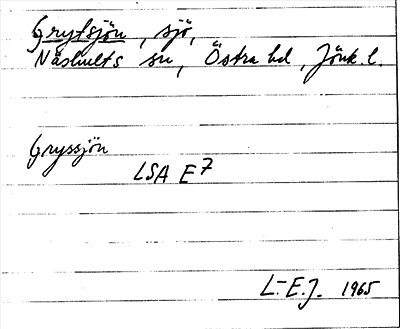 Grytsjön, sjö,
Näshults sn, Östra hd, Jönk. l.
Gryssjön
LSA E7
L-E.J. 1965